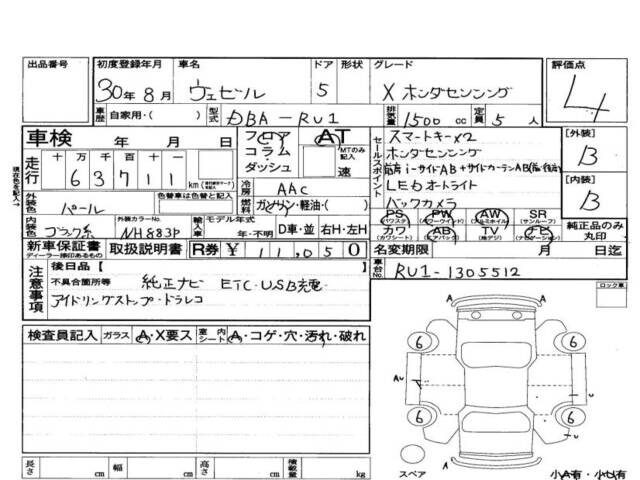 出品番号
初度登録年月 車名 ドア 形状 グレード 評価点
30年8月 ヴェゼル 5 X ホンダセンシング 4
車歴 自家用・( ) 型式 DBA-RU1 排気量 1500 cc 定員 5 人
車検 年 月 日
フロア コラム・ダッシュ
AT MTのみ記入 速
セールスポイント
スマートキー×2
ホンダセンシング
i-サイドAB+サイドカーテンAB
LEDオートライト
バックカメラ
[外装] B
[内装] B
走行 十万 万 千 百 十
6 3 7 1 1 km
冷房 AAC
外装色 パール 色替車は色替と記入
燃料 ガソリン・軽油・( )
内装色 ブラック系 外装カラーNo. NH883P
輸入車 モデル年式 年・不明 D車・並 右H・左H
PS (パワステ) PW (パワーウインド) AW (アルミホイル) SR (サンルーフ)
カワ (カワシート) AB (エアバック) TV (地デジ) (ナビゲーション)
純正品のみ丸印
新車保証書 ディーラー捺印あるもの 取扱説明書 R券 ¥ 11,050
名変期限 月 日迄
車台No. RU1-1305512
注意事項
後日品【
不具合箇所等 純正ナビ ETC・USB充電
アイドリングストップ・ドラレコ
ロック車
検査員記入 ガラス A・X要ス 室内シート A・コゲ・穴・汚れ・破れ
A
6 6
AU U
6 6
U
A
スペア
小A有・小U有
長さ cm 幅 cm 高さ cm 積載量 kg
現在色を記入→